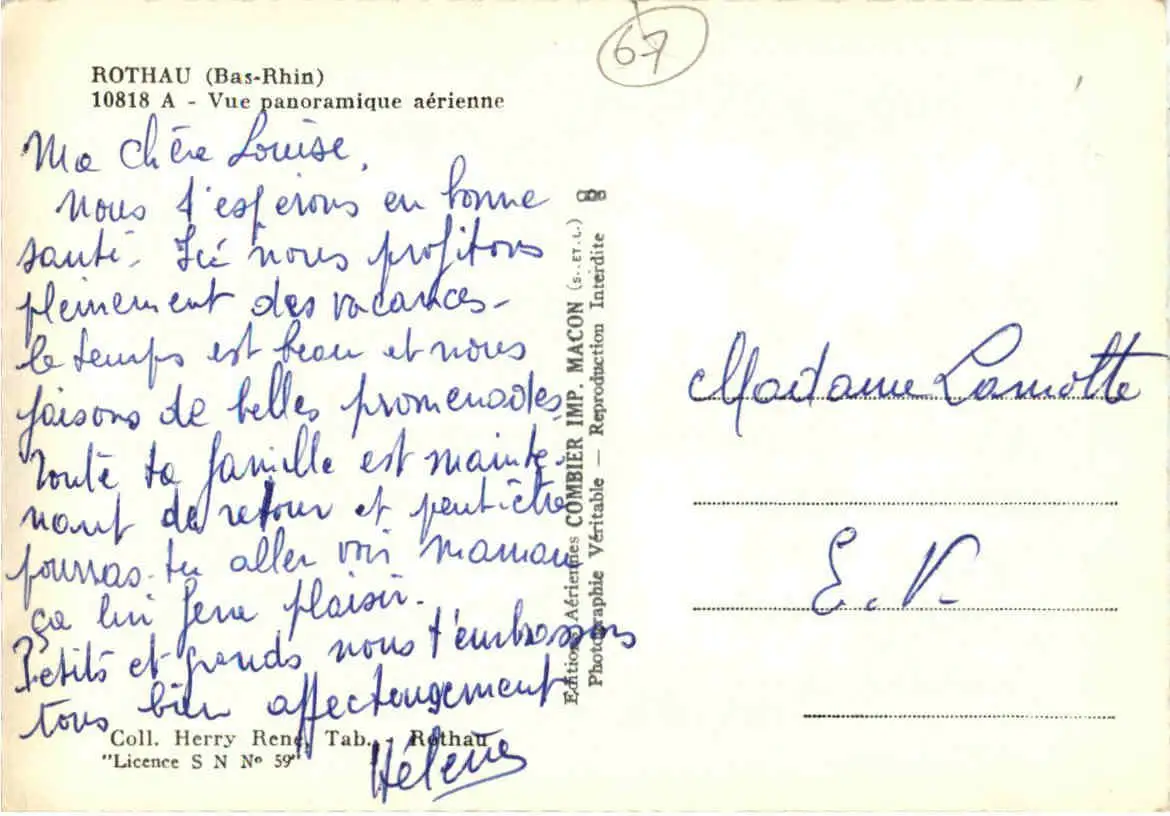 67
ROTHAU (Bas-Rhin)
10818 A - Vue panoramique aérienne
Ma chère Louise,
Nous t'espérons en bonne
santé. Ici nous profitons
pleinement des vacances -
le temps est beau et nous
faisons de belles promenades,
Toute ta famille est mainte-
nant de retour et peut-être
pourras-tu aller voir maman
ça lui fera plaisir.
Petits et grands nous t'embrassons
tous bien affectueusement
Hélène
Coll. Herry René, Tab. - Rothau
"Licence S N Nº 59"
Editions Aériennes COMBIER IMP. MACON (S.-ET-L.)
Photographie Véritable — Reproduction Interdite
Madame Lamotte
E. V.